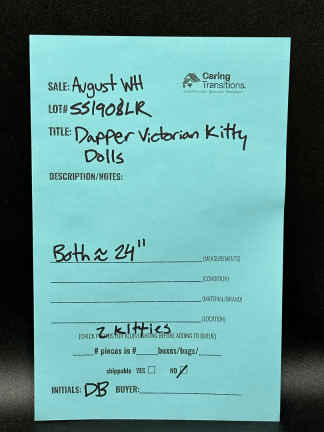 SALE: August WH
Caring
Transitions.
LOT# SS1908LR
TITLE: Dapper Victorian Kitty
Dolls
DESCRIPTION/NOTES:
Both ≈ 24" (MEASUREMENTS)
(CONDITION)
(MATERIAL/BRAND)
(LOCATION)
2 kitties
BEFORE ADDING TO QUEUE)
# pieces in # boxes/bags/
shippable YES NO
INITIALS: DB BUYER: